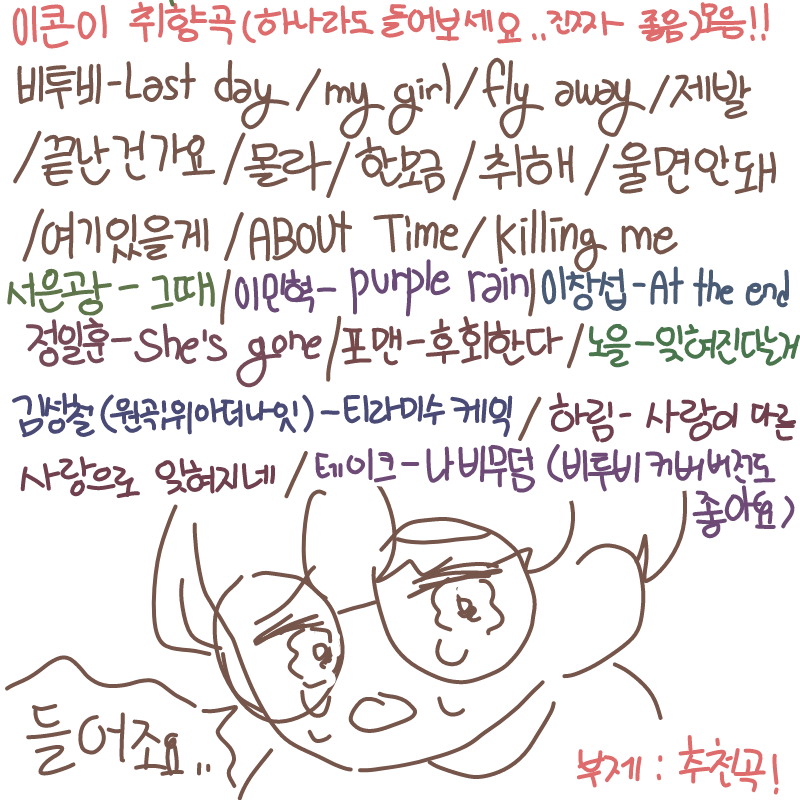 이콘이 취향곡(하나라도 들어보세요..진짜 좋음)모음!!
비투비-Last day /my girl/ fly away /제발
/끝난건가요 /몰라/한모금 /취해 /울면안돼
/여기있을게 /ABOUt Time /killing me
서은광 - 그때/이민혁- purple rain/이창섭-At the end
정일훈-She's gone /포맨-후회한다 /노을-잊혀진다는게
김성철(원곡;위아더나잇)-티라미수 케익 /하림- 사랑이 다른
사랑으로 잊혀지네 /테이크-나비무덤 (비투비 커버버전도
좋아요)
들어죠요..
부제 : 추천곡!